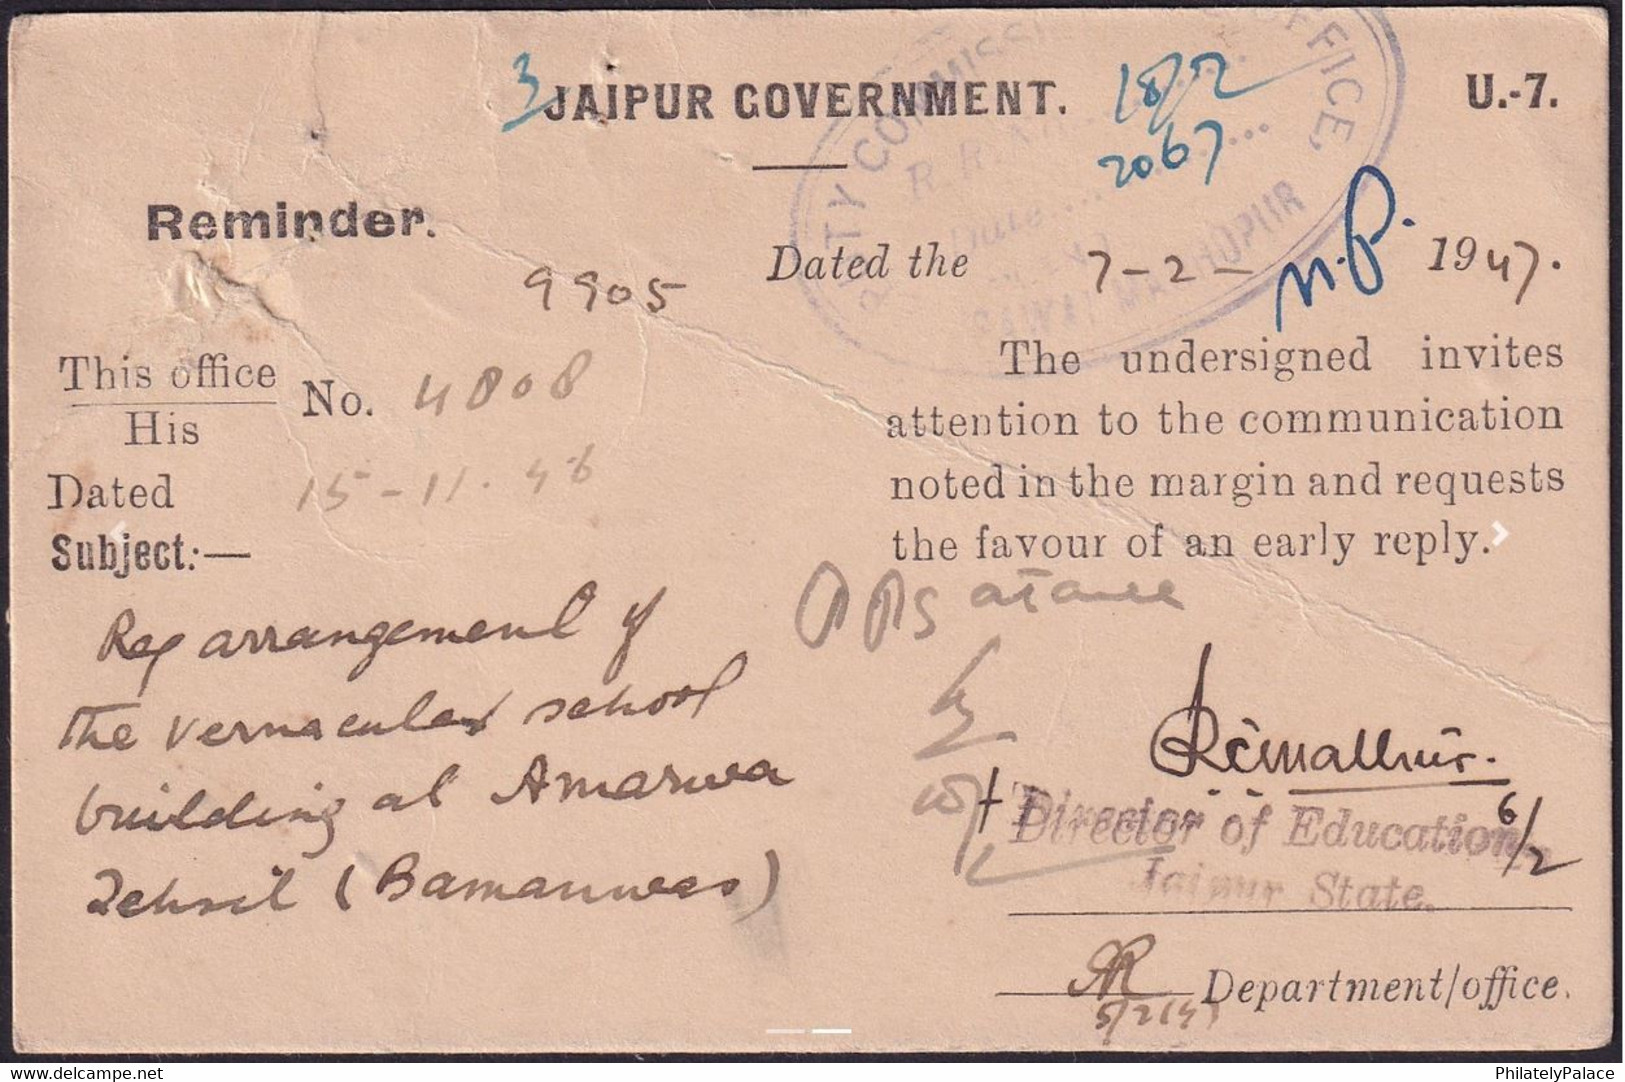 3 JAIPUR GOVERNMENT.
U.-7.
2067
Reminder.
9905
Dated the 7-2- 1947.
This office
His
No. 4808
Dated 15-11-46
Subject:—
The undersigned invites
attention to the communication
noted in the margin and requests
the favour of an early reply.
Reg arrangement of
the vernacular school
building at Amarwa
Tehsil (Bamanwas)
6/2
Director of Education
Jaipur State.
Department/office.
OFFICE,
delcampe.net
PhilatelyPalace